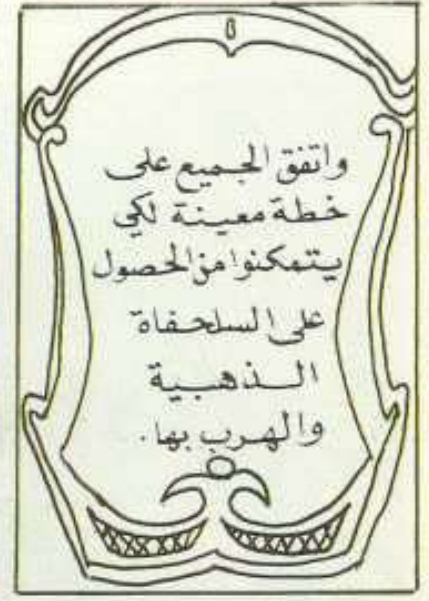 واتفق الجميع على
خطة معينة لكي
يتمكنوا من الحصول
على السلحفاة
الذهبية
والهرب بها.